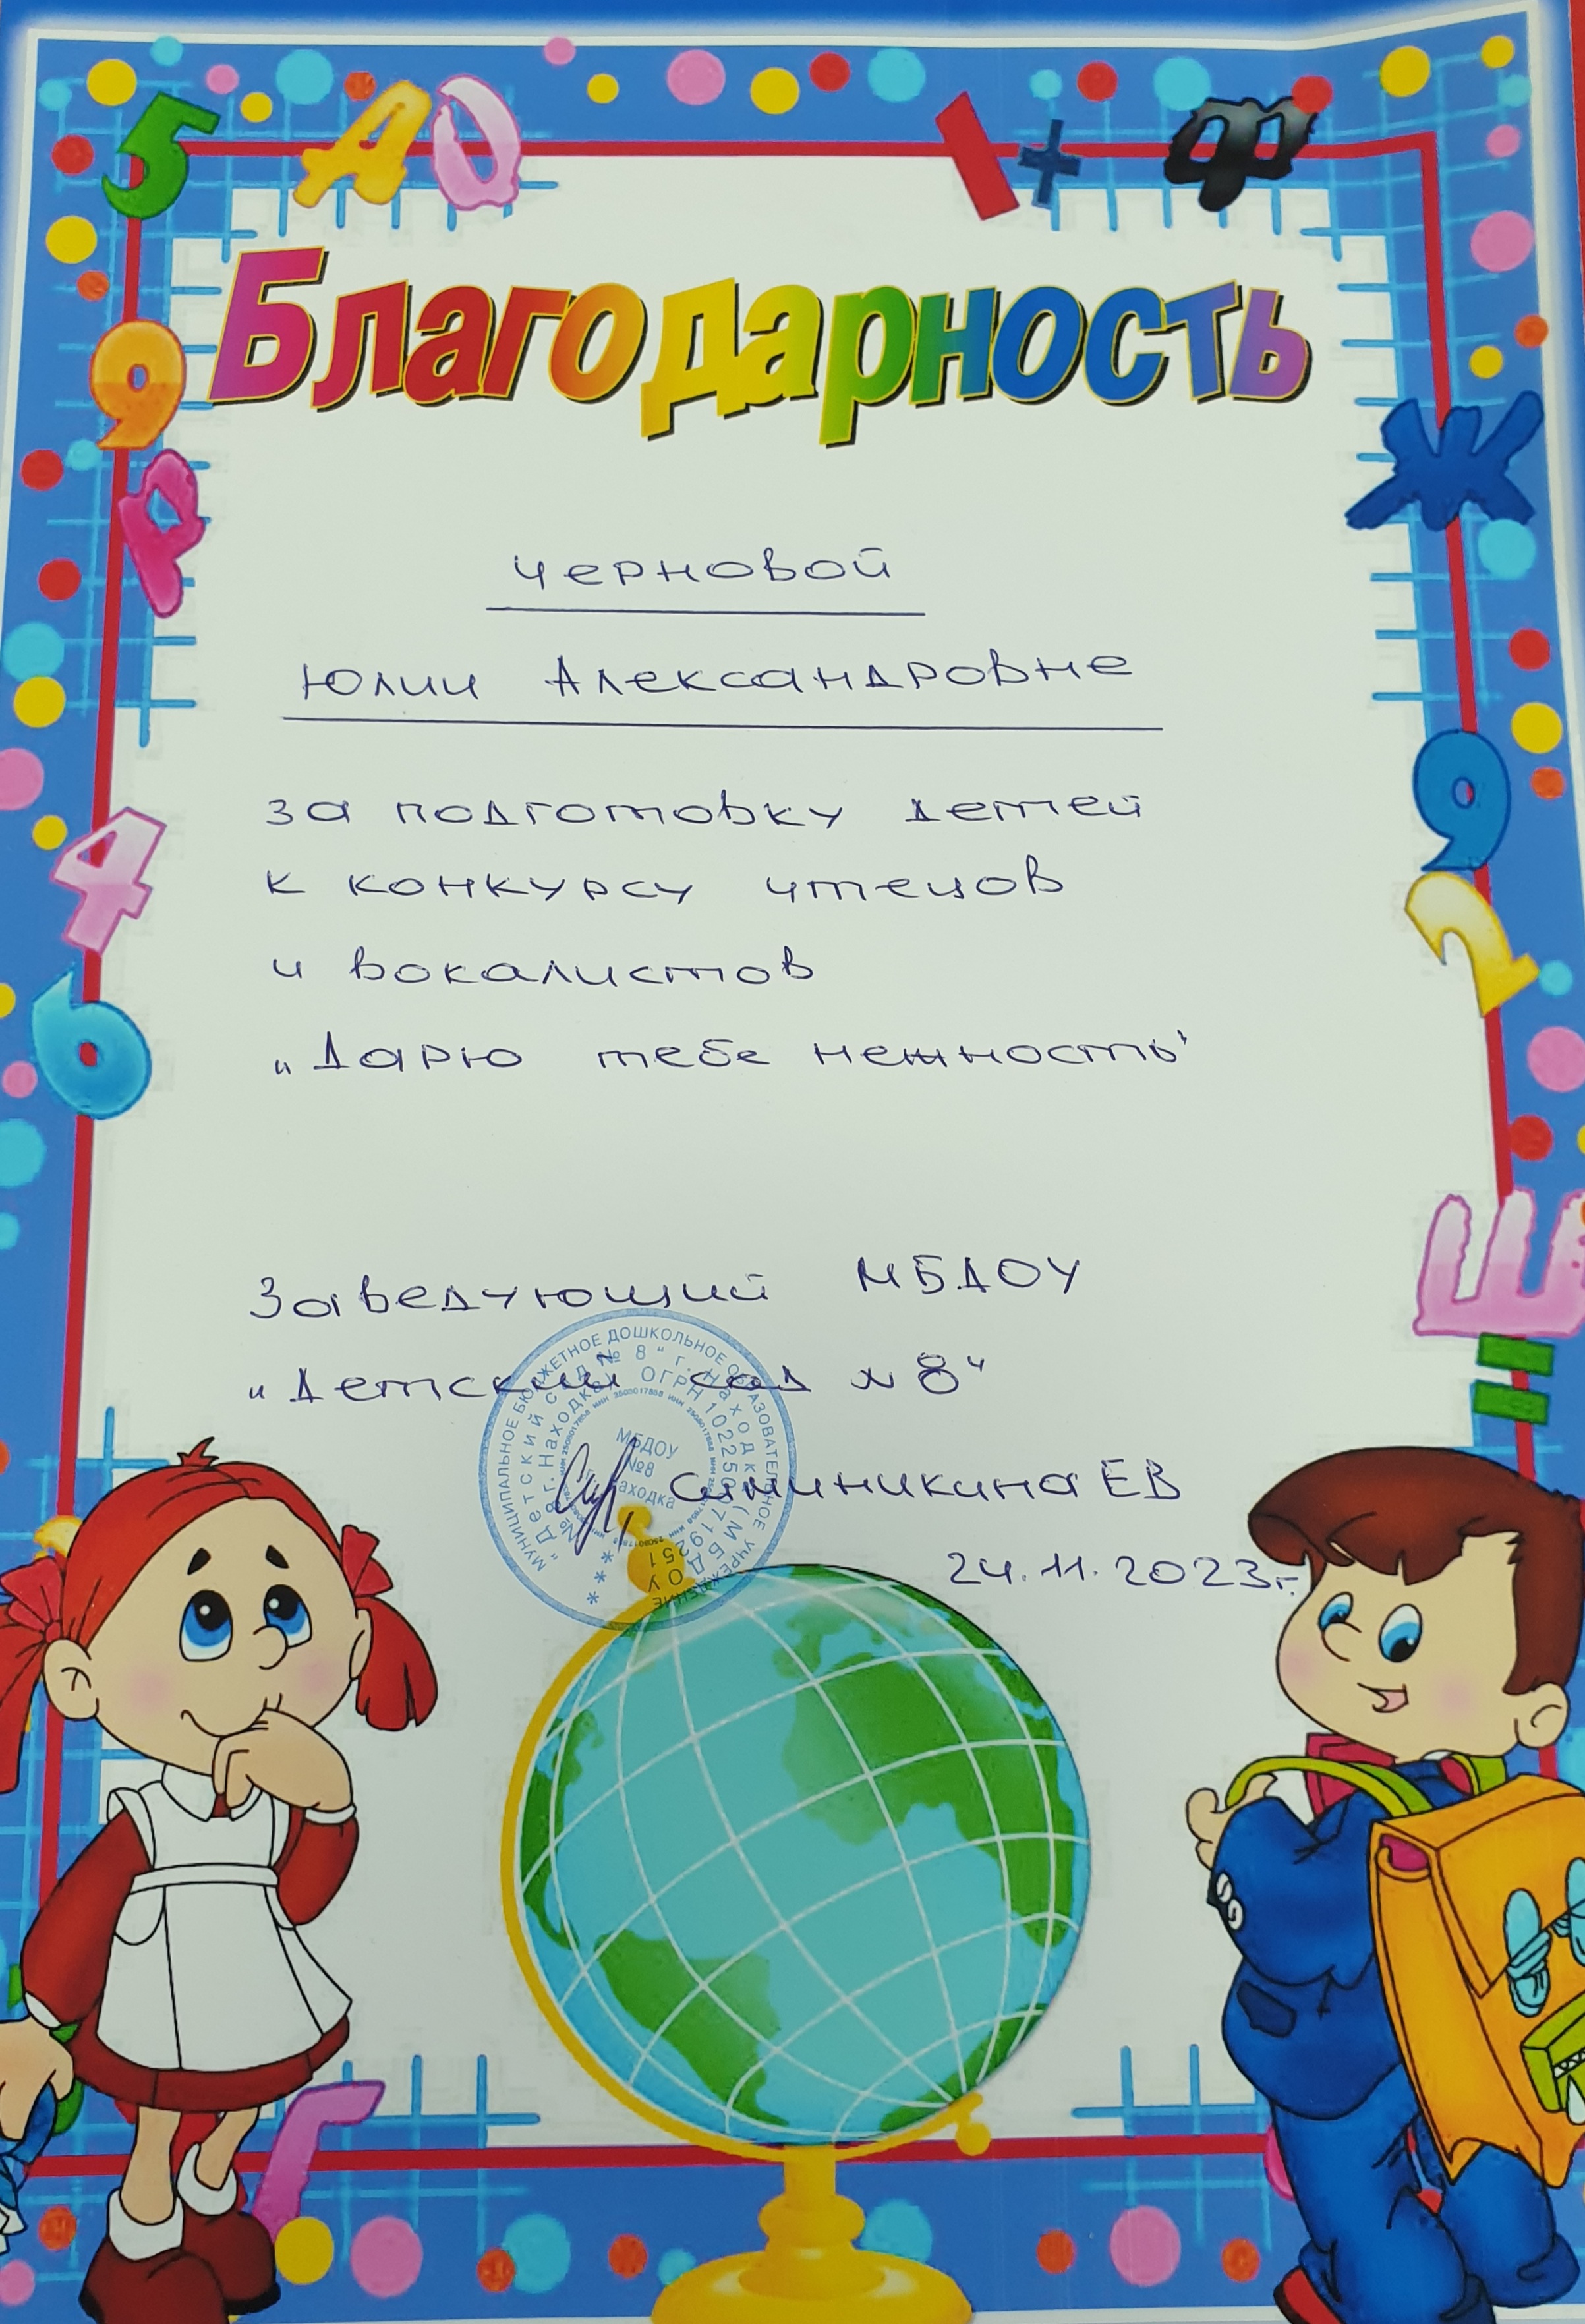 5 А О 1 + Ф
Благодарность
9
Р
Ж
Черновой
Юлии Александровне
за подготовку детей
к конкурсу чтецов
и вокалистов
„Дарю тебе нежность"
9
4
2
6
Ш
=
Заведующий МБДОУ
„Детский сад № 8"
МУНИЦИПАЛЬНОЕ БЮДЖЕТНОЕ ДОШКОЛЬНОЕ ОБРАЗОВАТЕЛЬНОЕ УЧРЕЖДЕНИЕ
"Детский сад № 8" г. Находка (МБДОУ
№ 8 г. Находка) ОГРН 1022500719251
МБДОУ
№8
Находка
ЕВ
24.11.2023г.
Г